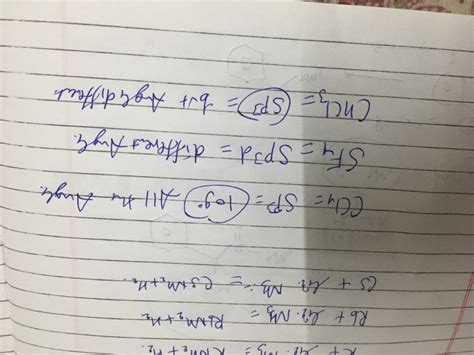 liq. NH₃ = KNH₂ + H₂.
Rb + liq. NH₃ = RbNH₂ + H₂
Cs + liq. NH₃ = CsNH₂ + H₂.
CCl₄ = SP³ = 109° All the Angle.
SF₄ = SP3d = different Angle.
CHCl₃ = SP3 = but Angle different